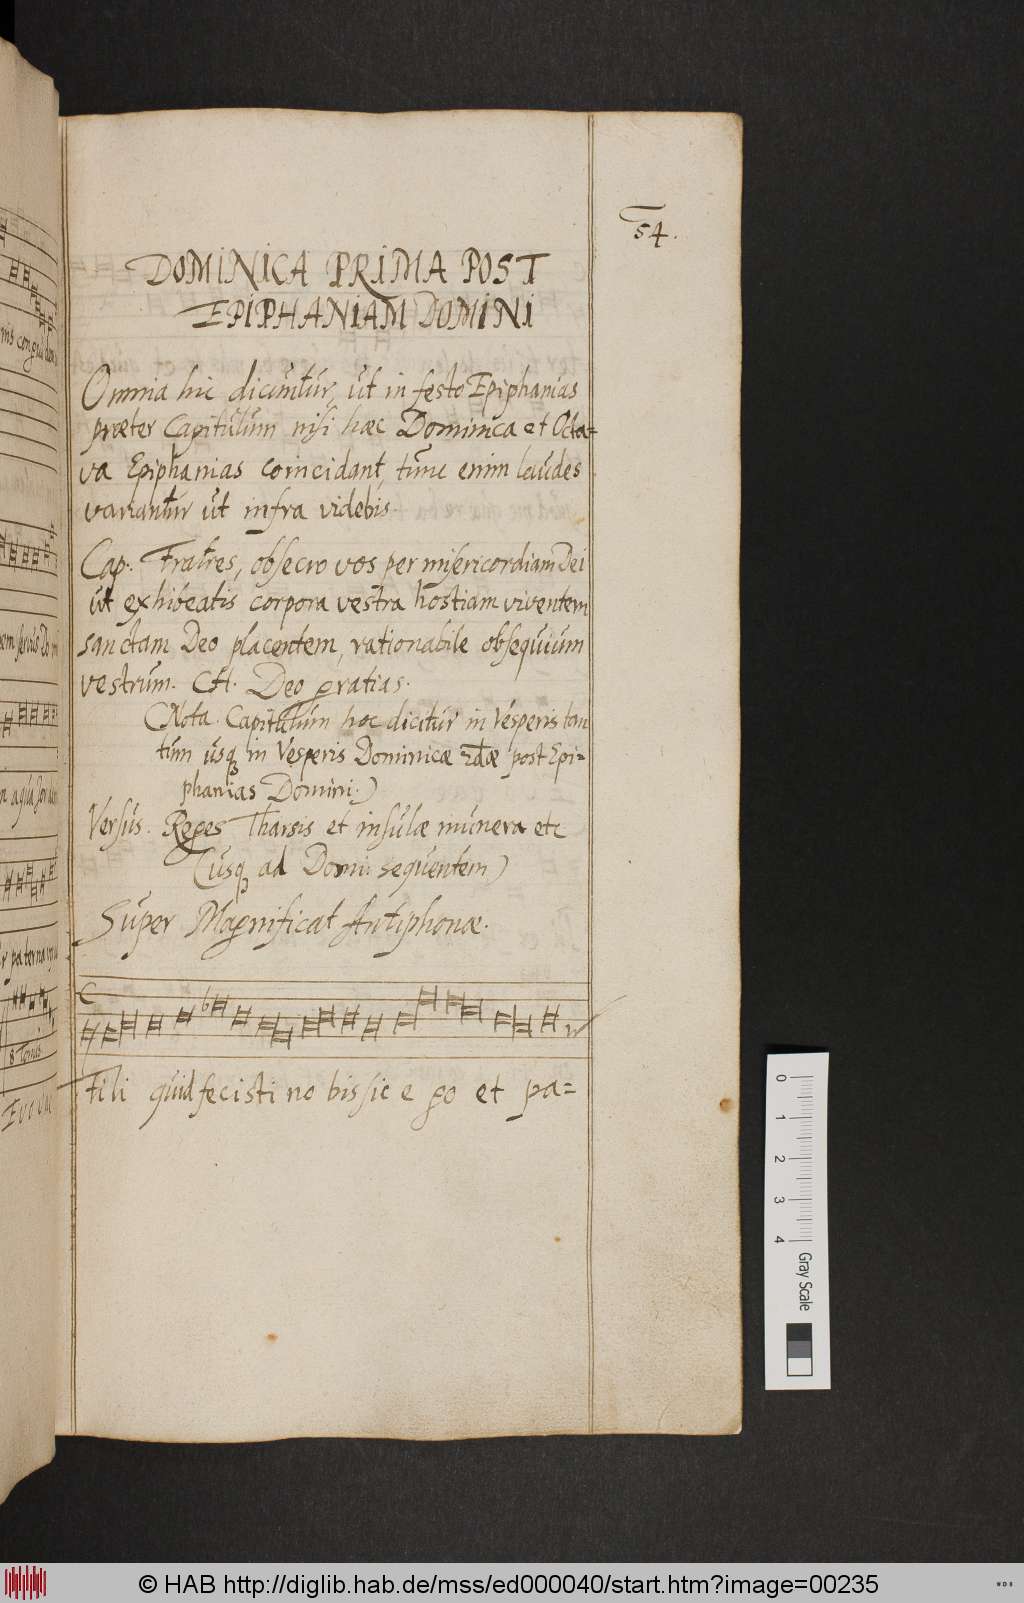 54.
DOMINICA PRIMA POST
EPIPHANIAM DOMINI
Omnia hic dicuntur, ut in festo Epiphanias
præter Capitulum nisi hæc Dominica et Octa=
va Epiphanias coincidant, tunc enim laudes
variantur ut infra videbis.
Cap. Fratres, obsecro vos per misericordiam Dei
ut exhibeatis corpora vestra hostiam viventem
sanctam Deo placentem, rationabile obsequium
vestrum. CH. Deo gratias.
(Nota. Capitulum hoc dicitur in Vesperis tan
tum usq in Vesperis Dominicæ 2dæ post Epi=
phanias Domini.)
Versus. Reges Tharsis et insulæ munera etc
(usq ad Domi: sequentem)
Super Magnificat Antiphonæ.
Fili quid fecisti no bis sic e go et pa=
8 Tonus
0 1 2 3 4 Gray Scale
© HAB http://diglib.hab.de/mss/ed000040/start.htm?image=00235